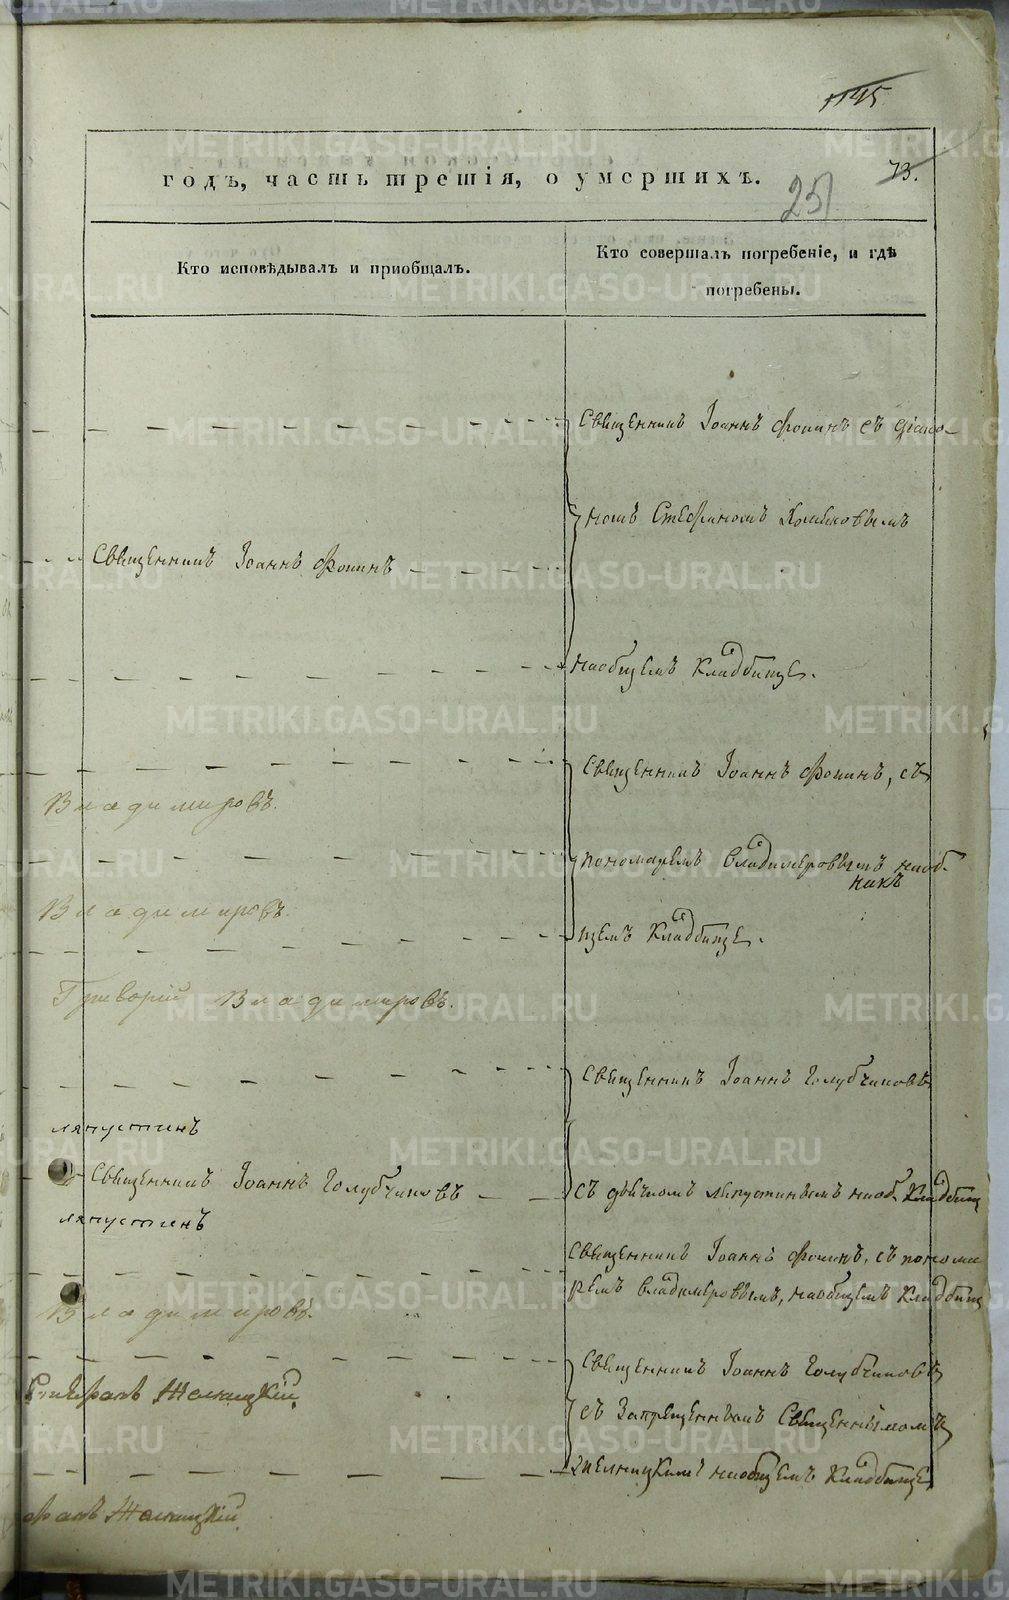 1145
годъ, часть третія, о умершихъ.
73.
251
Кто исповѣдывалъ и пріобщалъ.
Кто совершалъ погребеніе, и гдѣ
погребены.
Священникъ Іоаннъ Фокинъ съ діако-
номъ Стефаномъ
Священникъ Іоаннъ Фокинъ
наобщемъ кладбище.
Священникъ Іоаннъ Фокинъ, съ
Владимировъ.
пономаремъ Владимеровымъ наоб-
Владимировъ.
щемъ кладбище.
Григорій Владимировъ.
Священникъ Іоаннъ Голубчиковъ
ляпустинъ
Священникъ Іоаннъ Голубчиковъ
съ дьячкомъ ляпустинымъ наоб. кладбищ
ляпустинъ
Священникъ Іоаннъ Фокинъ, съ понома
ремъ Владимеровымъ, наобщемъ кладбищ
Владимировъ.
Священникъ Іоаннъ Голубчиковъ
съ Запрещеннымъ Священникомъ
наобщемъ кладбище
METRIKI.GASO-URAL.RU